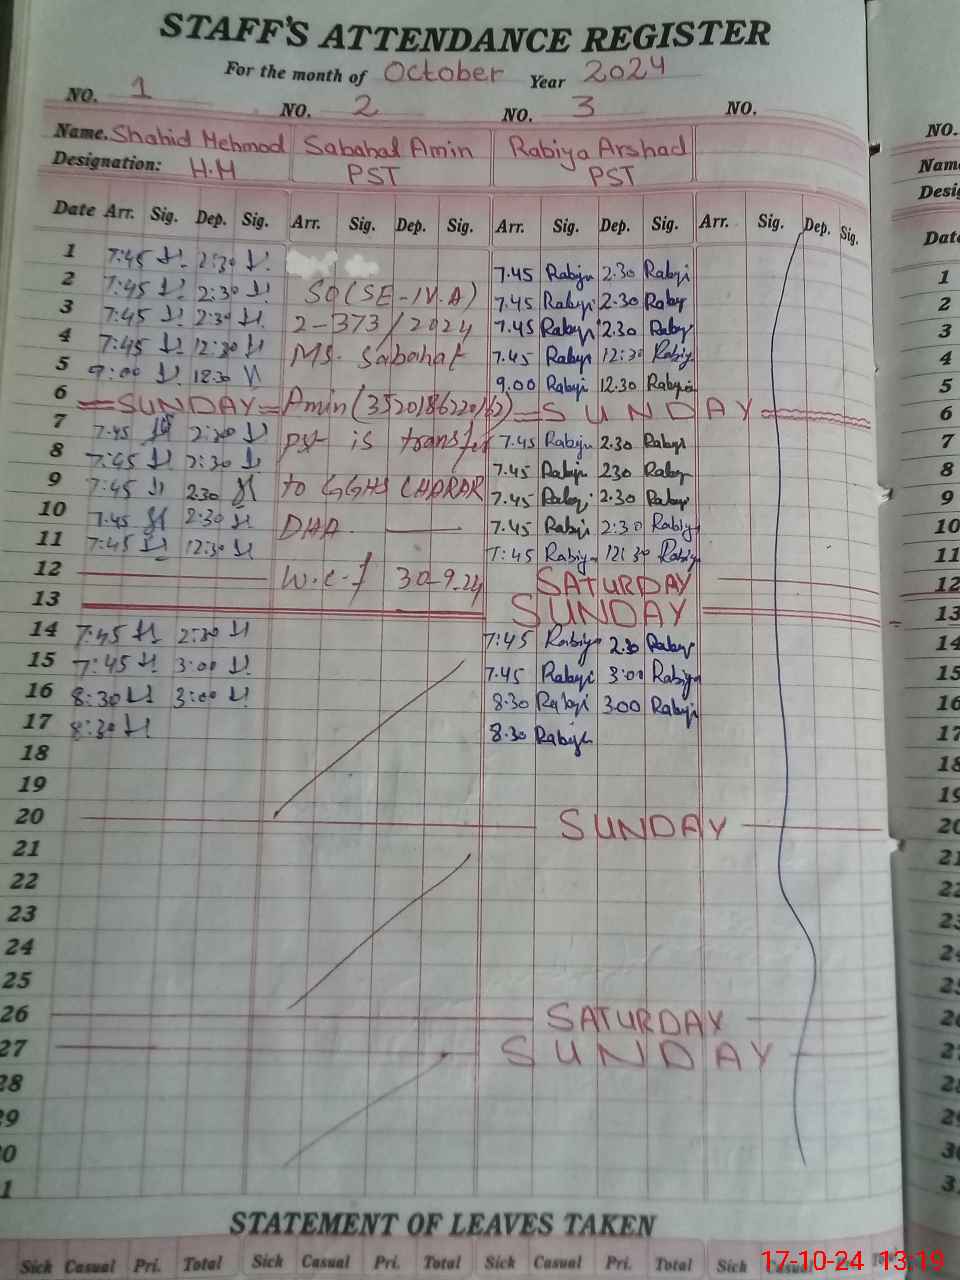 STAFF'S ATTENDANCE REGISTER
For the month of October Year 2024
NO. 1 NO. 2 NO. 3 NO. NO.
Name. Shahid Mehmod Sabahal Amin Rabiya Arshad Nam
Designation: H.M PST PST Desig
Date Arr. Sig. Dep. Sig. Arr. Sig. Dep. Sig. Arr. Sig. Dep. Sig. Arr. Sig. Dep. Sig. Dat
1 7:45 2:30 7.45 Rabiya 2.30 Rabyi 1
2 7:45 2:30 SO(SE-IV.A) 7.45 Rabyi 2.30 Raby 2
3 7:45 2:30 2-373/2024 7.45 Rabyi 2.30 Raby 3
4 7:45 12:30 Ms. Sabahat 7.45 Rabyi 12:30 Rabiy 4
5 9:00 12.30 9.00 Rabyi 12.30 Rabyi 5
6 SUNDAY Amin( SUNDAY 6
7 7.45 2:30 pst is transfer 7.45 Rabiya 2.30 Rabyi 7
8 7:45 2:30 7.45 Rabyi 230 Raby 8
9 7:45 2.30 to GGHS CHARAR 7.45 Rabyi 2.30 Raby 9
10 7.45 2:30 DHA 7.45 Rabyi 2:30 Rabiya 10
11 7:45 12:30 7:45 Rabiya 12:30 Rabiya 11
12 W.e.f 30-9.24 SATURDAY 12
13 SUNDAY 13
14 7:45 2:30 7:45 Rabiya 2.30 Raby 14
15 7:45 3:00 7.45 Rabyi 3:00 Rabiya 15
16 8:30 3:00 8.30 Rabyi 3.00 Rabyi 16
17 8:30 8.30 Rabiya 17
18 18
19 19
20 SUNDAY 20
21 21
22 22
23 23
24 24
25 25
26 SATURDAY 26
27 SUNDAY 27
28 28
29 29
30 30
31 31
STATEMENT OF LEAVES TAKEN
Sick Casual Pri. Total Sick Casual Pri. Total Sick Casual Pri. Total Sick Casual Pri. Total
17-10-24 13:19